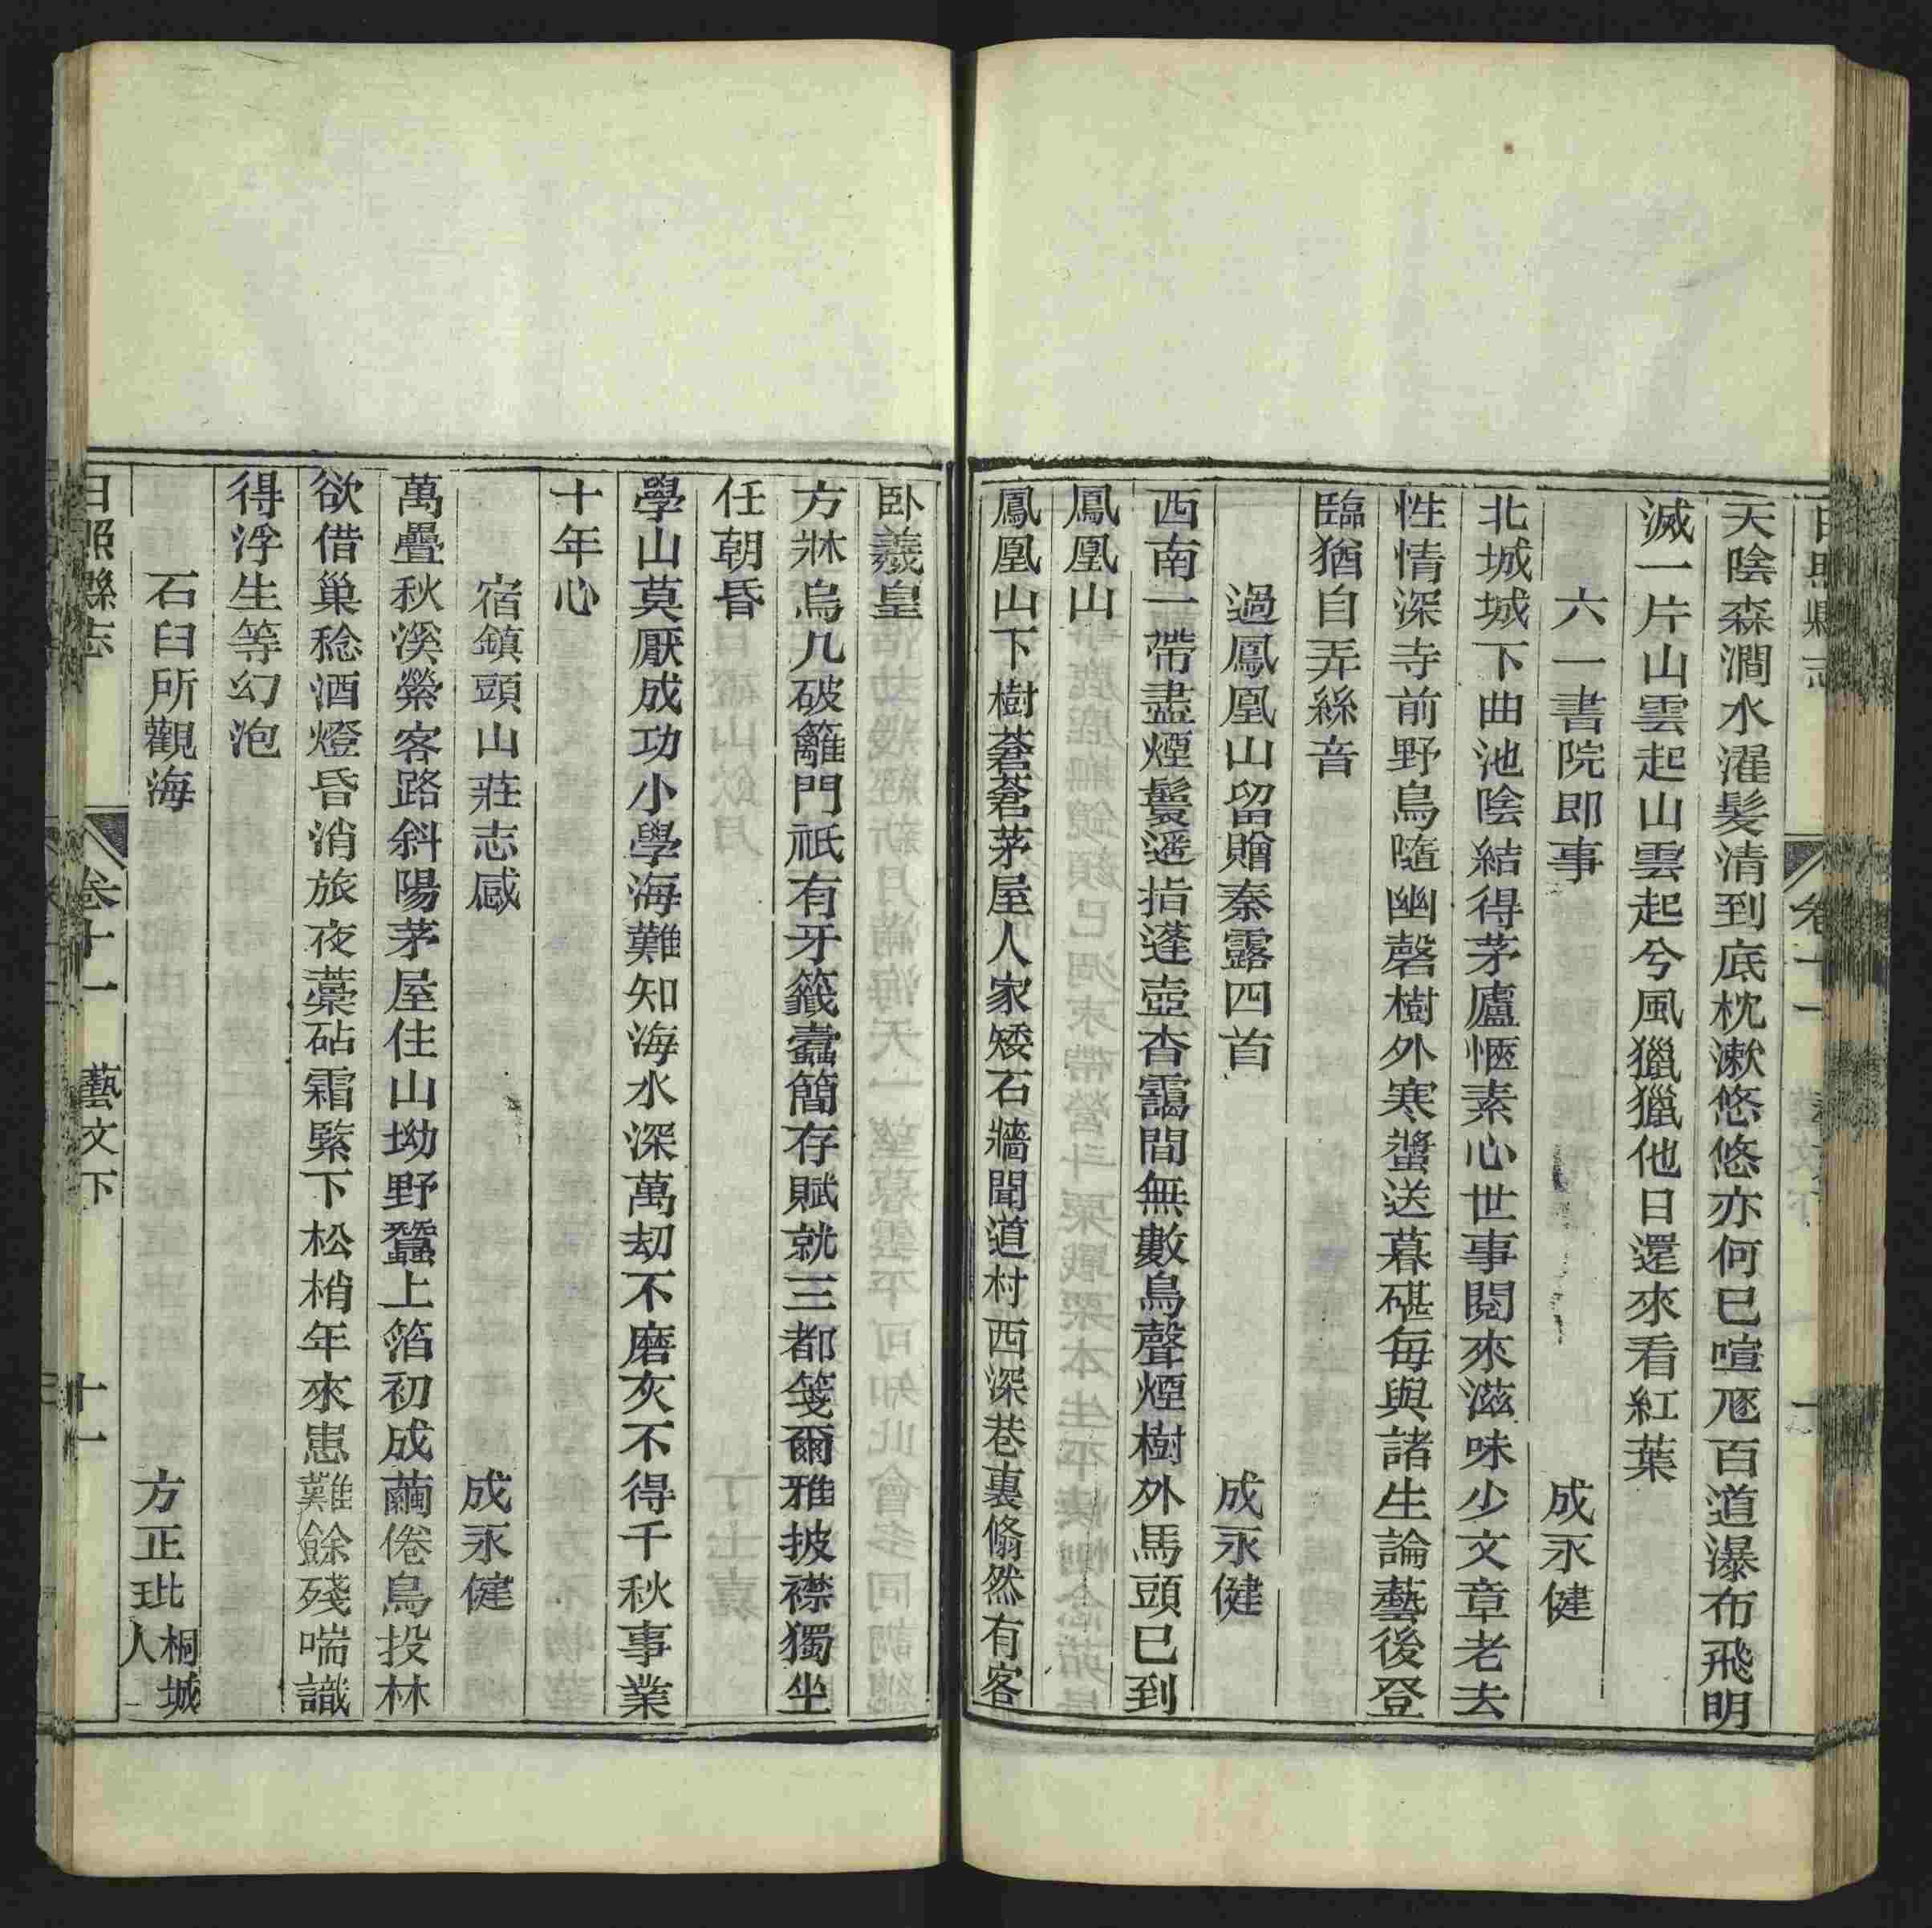 日照縣志
卷十一
天陰森澗水濯髮清到底枕漱悠悠亦何已喧豗百道瀑布飛明
滅一片山雲起山雲起兮風獵獵他日還來看紅葉
六一書院即事　成永健
北城城下曲池陰結得茅廬愜素心世事閱來滋味少文章老去
性情深寺前野鳥隨幽磬樹外寒螿送暮碪每與諸生論藝後登
臨猶自弄絲音
過鳳凰山留贈秦露四首　成永健
西南一帶盡煙鬟遥指蓬壺杳靄間無數鳥聲煙樹外馬頭已到
鳳凰山
鳳凰山下樹蒼蒼茅屋人家矮石牆聞道村西深巷裏翛然有客
卧羲皇
方牀烏几破籬門祇有牙籤蠹簡存賦就三都箋爾雅披襟獨坐
任朝昏
學山莫厭成功小學海難知海水深萬刼不磨灰不得千秋事業
十年心
宿鎮頭山莊志感　成永健
萬疊秋溪縈客路斜陽茅屋住山坳野蠶上箔初成繭倦鳥投林
欲借巢稔酒燈昏消旅夜藁砧霜緊下松梢年來患難餘殘喘識
得浮生等幻泡
石臼所觀海　方正玭桐城人
日照縣志
卷十一
藝文下
十一